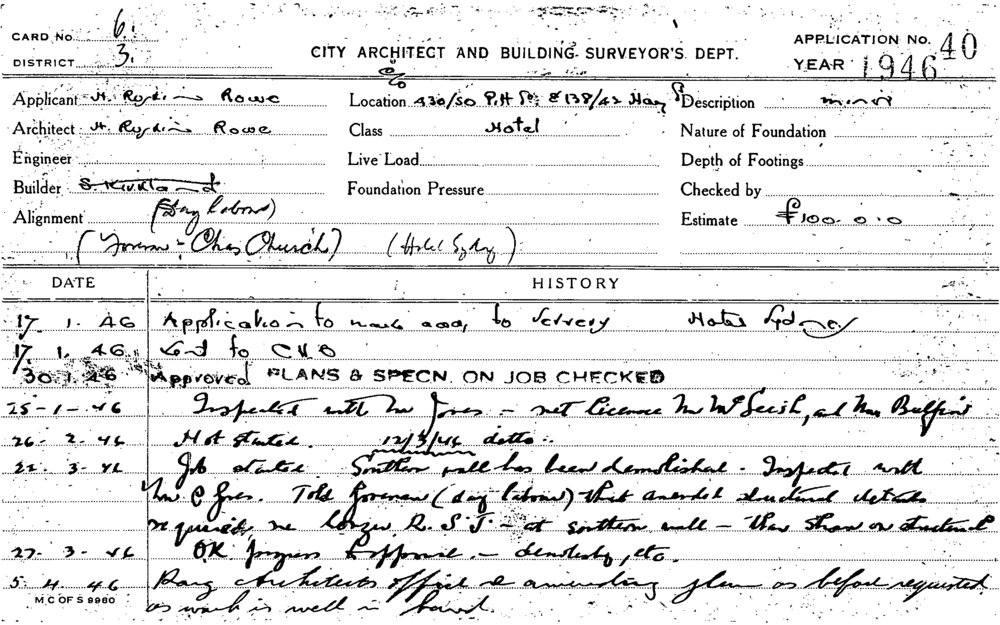 CARD No. 6.
DISTRICT 3.
CITY ARCHITECT AND BUILDING SURVEYOR'S DEPT.
APPLICATION No. 40
YEAR 1946
Applicant H. Ruskin Rowe
Location 430/50 Pitt St. & 138/42 Hay St
Description minor
Architect H. Ruskin Rowe
Class Hotel
Nature of Foundation
Engineer
Live Load
Depth of Footings
Builder S. Kirkland
Foundation Pressure
Checked by
Alignment (Day labour)
Estimate £100.0.0
(Foreman:- Chas Church) (Hotel Sydney)
DATE HISTORY
17. 1. 46 Application to make to Hotel Sydney
17. 1. 46 Sent to
30.1.46 Approved PLANS & SPECN. ON JOB CHECKED
25-1-46 Inspected with Mr Jones - met licensee Mr and Mr
26. 2. 46 Not started. 12/3/46 ditto.
22. 3. 46 Job started Southern wall has been demolished. Inspected with
Mr C Jones. Told foreman (day labour) that amended structural details
required, re longer R.S.J. - at southern wall - than shown on structural
27. 3. 46 OK progress - demolishing, etc.
5. 4. 46 Rang Architects office re amending plan as before requested
M C OF S 9980
as work is well in hand.